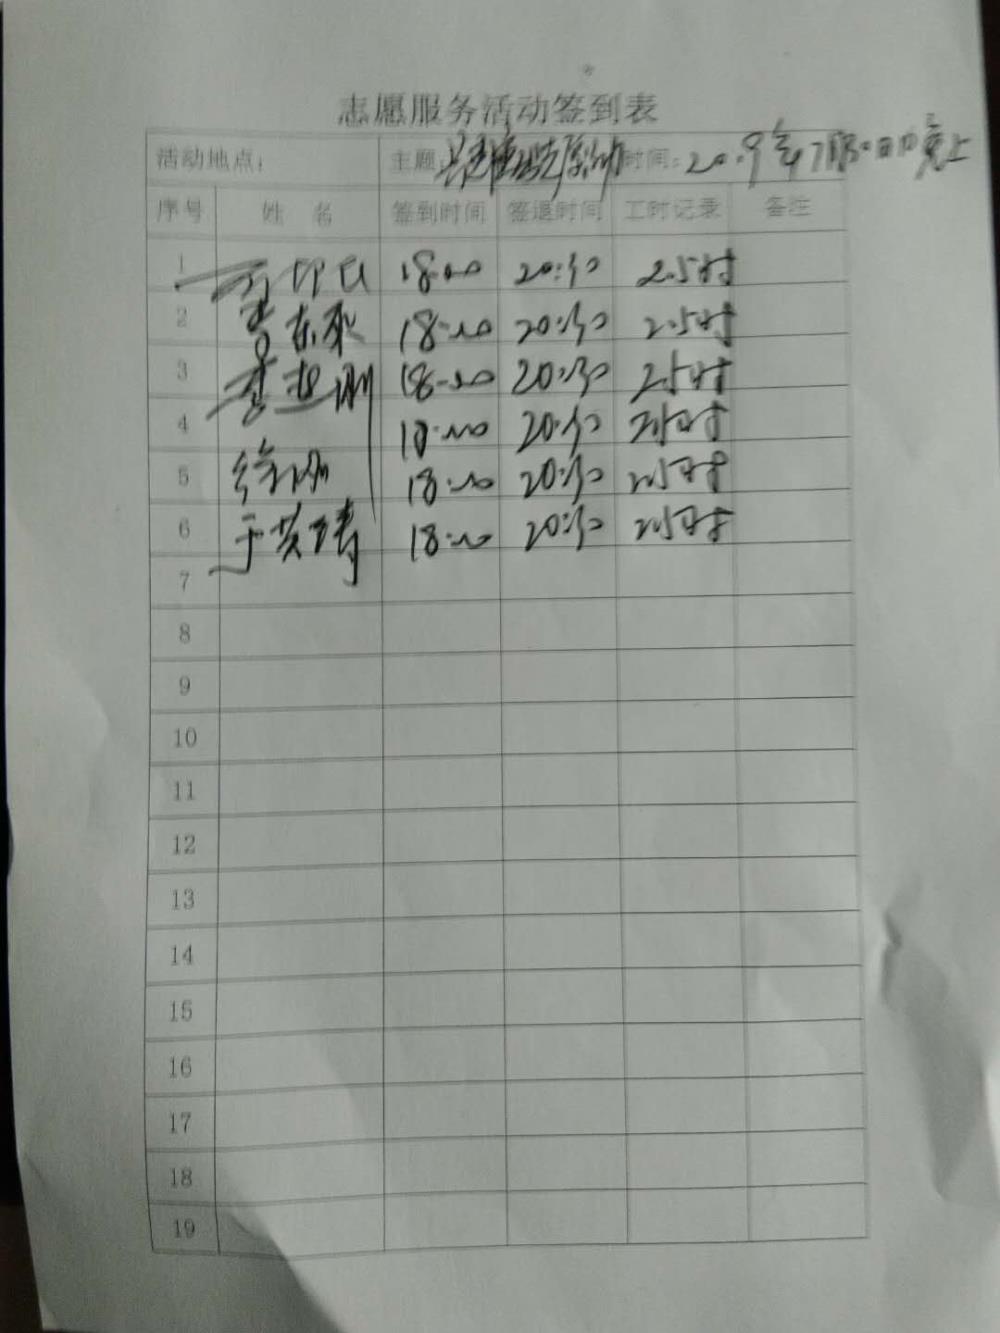 志愿服务活动签到表
活动地点： 主题： 时间：2019年7月30日晚上
序号 姓 名 签到时间 签退时间 工时记录 备注
1 18:00 20:30 2.5时
2 李东 18:00 20:30 2.5时
3 李 刚 18:00 20:30 2.5时
4 18:00 20:30 2.5时
5 徐 刚 18:00 20:30 2.5时
6 于英涛 18:00 20:30 2.5时
7
8
9
10
11
12
13
14
15
16
17
18
19